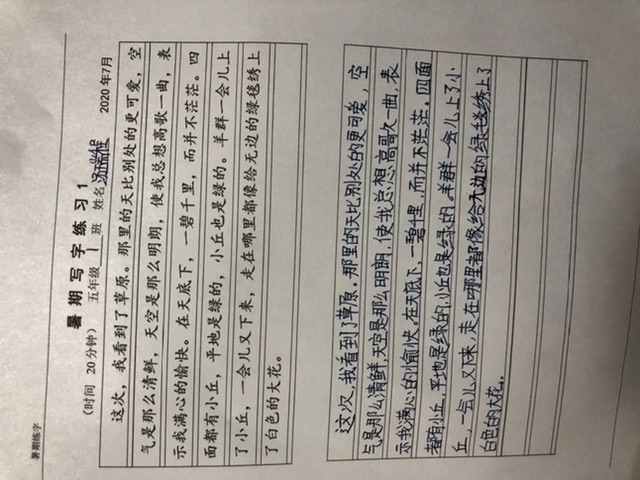 暑期练字
暑 期 写 字 练 习 1
(时间 20分钟) 五年级 1 班 姓名 2020年7月
这次，我看到了草原。那里的天比别处的更可爱，空
气是那么清鲜，天空是那么明朗，使我总想高歌一曲，表
示我满心的愉快。在天底下，一碧千里，而并不茫茫。四
面都有小丘，平地是绿的，小丘也是绿的。羊群一会儿上
了小丘，一会儿又下来，走在哪里都像给无边的绿毯绣上
了白色的大花。
这次，我看到了草原。那里的天比别处的更可爱，空
气是那么清鲜，天空是那么明朗，使我总想高歌一曲，表
示我满心的愉快。在天底下，一碧千里，而并不茫茫。四面
都有小丘，平地是绿的，小丘也是绿的。羊群一会儿上了小
丘，一会儿又下来，走在哪里都像给无边的绿毯绣上了
白色的大花。